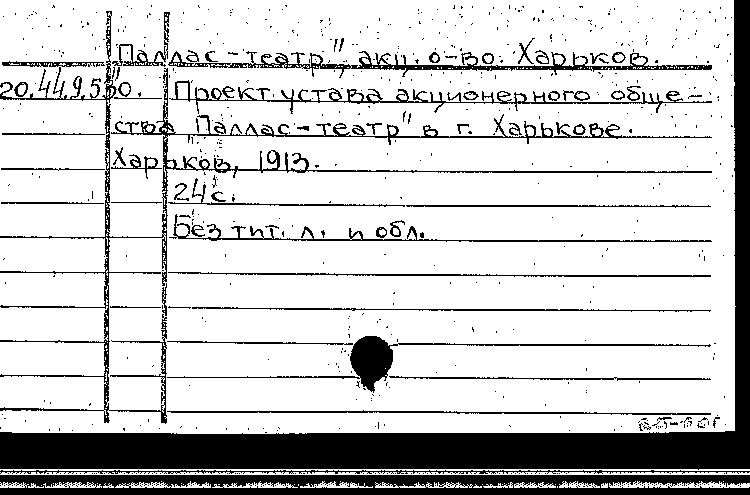 "Паллас-театр", акц. о-во. Харьков.
20.44.9.550. Проект устава акционерного обще-
ства "Паллас-театр" в г. Харькове.
Харьков, 1913.
24 с.
Без тит. л. и обл.